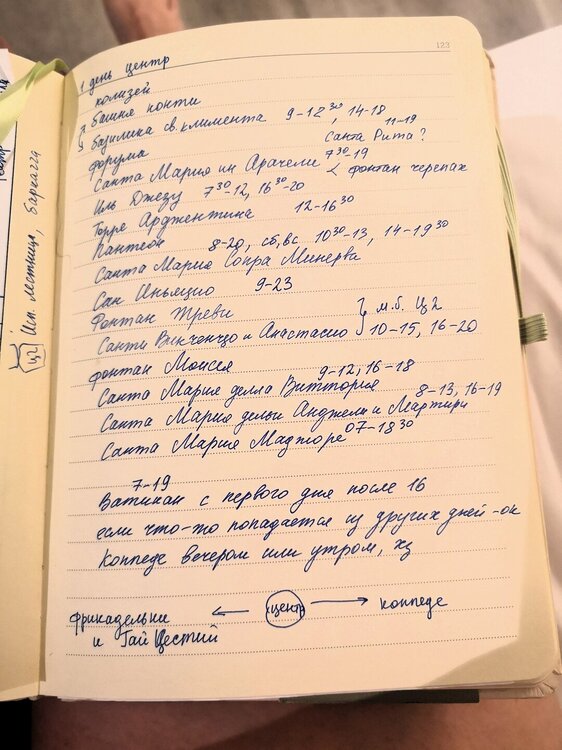 123
1 день центр
колизей
башня конти
базилика св. климента 9-12³⁰, 14-18
форума
11-19
Санта Рита?
Санта Мария ин Арачели 7³⁰-19
< фонтан черепах
Иль Джезу 7³⁰-12, 16³⁰-20
Торре Арджентина 12-16³⁰
Пантеон 8-20, сб, вс 10³⁰-13, 14-19³⁰
Санта Мария Сопра Минерва
Сан Иньяцио 9-23
Фонтан Треви
} м.б. Ц2
Санти Винченцо и Анастасио 10-15, 16-20
фонтан Моисея
Санта Мария делла Виттория 9-12, 16-18
Санта Мария дельи Анджели и Мартири 8-13, 16-19
Санта Мария Маджоре 07-18³⁰
7-19
Ватикан с первого дня после 16
если что-то попадается из других дней - ок
Коппеде вечером или утром, хз
фрикадельки и Гай Цестий ← центр → коппеде
Ц2 Исп. лестница, Баркачча